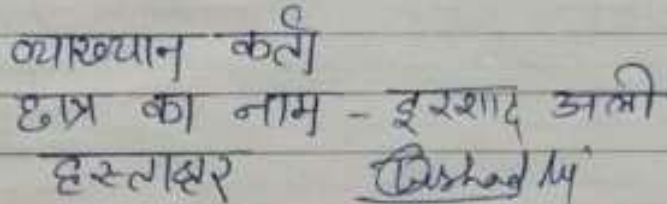 व्याख्यान कर्ता
छात्र का नाम - इरशाद अली
हस्ताक्षर Irshad Ali